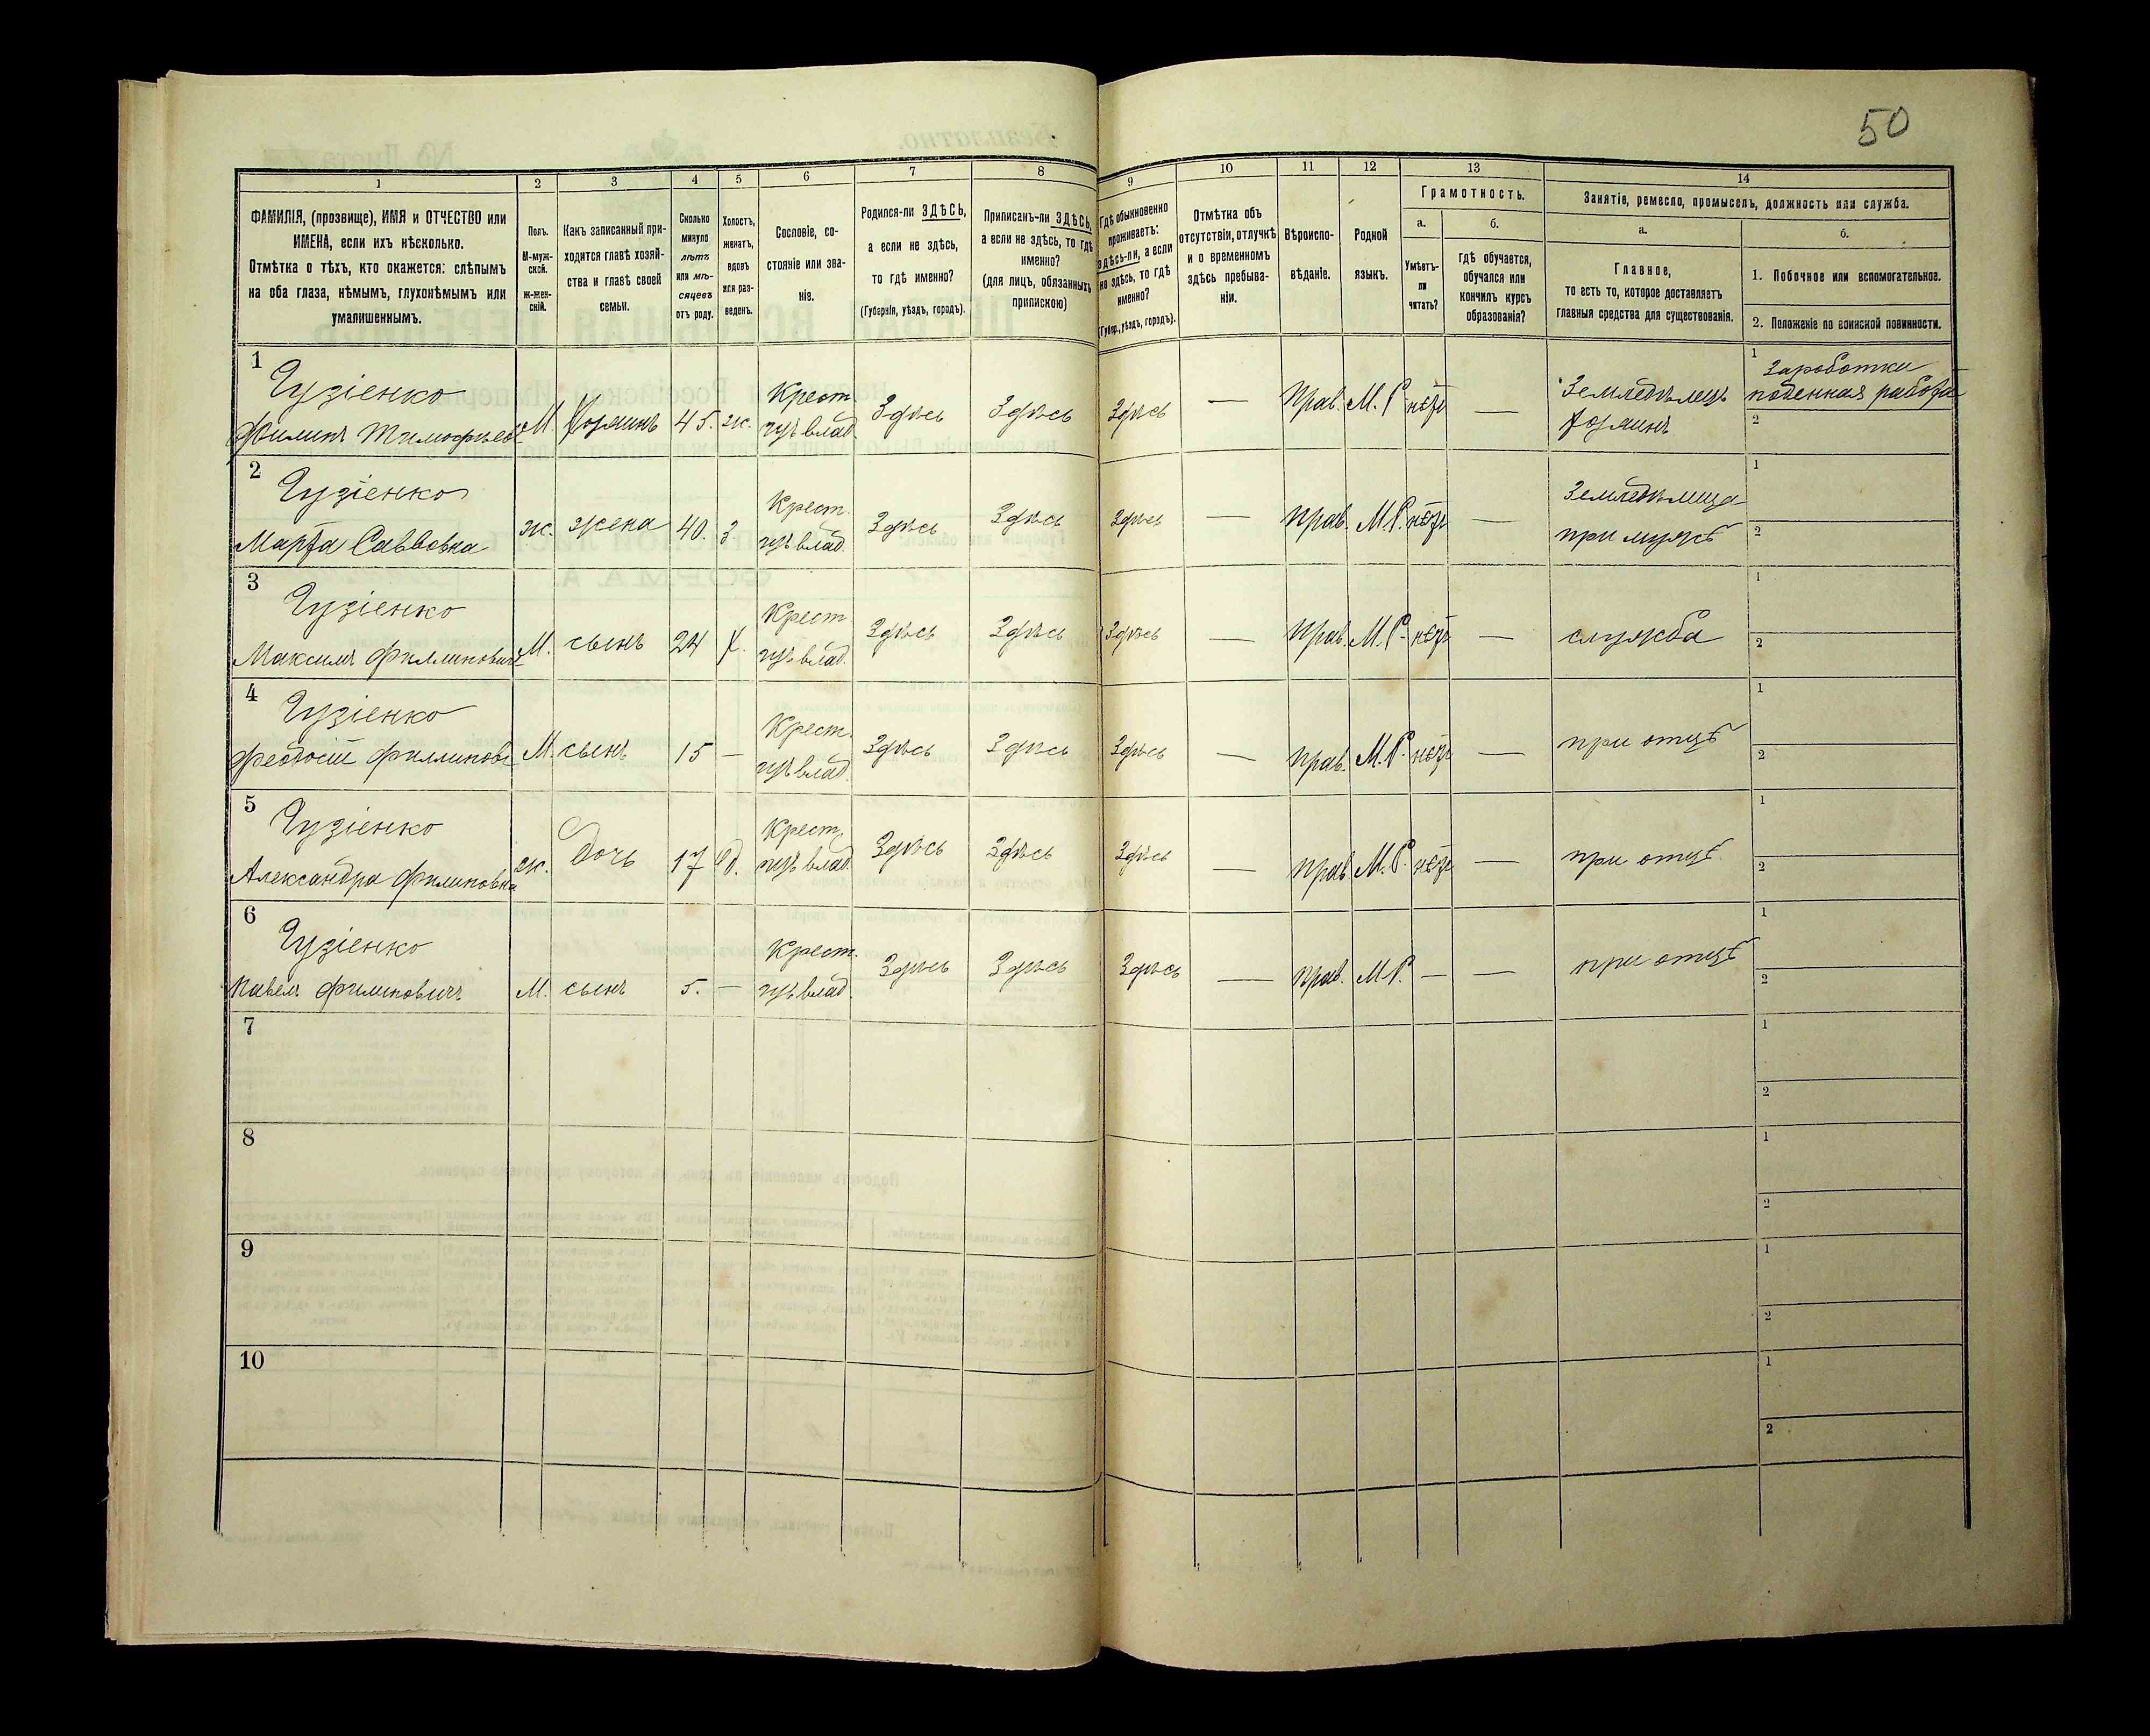 50
1
2
3
4
5
6
7
8
9
10
11
12
13
14
ФАМИЛІЯ, (прозвище), ИМЯ и ОТЧЕСТВО или
ИМЕНА, если ихъ нѣсколько.
Отмѣтка о тѣхъ, кто окажется: слѣпымъ
на оба глаза, нѣмымъ, глухонѣмымъ или
умалишеннымъ.
Полъ.
М-муж-
ской.
ж-жен-
скій.
Какъ записанный при-
ходится главѣ хозяй-
ства и главѣ своей
семьи.
Сколько
минуло
лѣтъ
или мѣ-
сяцевъ
отъ роду.
Холостъ,
женатъ,
вдовъ
или раз-
веденъ.
Сословіе, со-
стояніе или зва-
ніе.
Родился-ли ЗДѢСЬ,
а если не здѣсь,
то гдѣ именно?
(Губернія, уѣздъ, городъ).
Приписанъ-ли ЗДѢСЬ,
а если не здѣсь, то гдѣ
именно?
(для лицъ, обязанныхъ
припискою)
Гдѣ обыкновенно
проживаетъ:
здѣсь-ли, а если
не здѣсь, то гдѣ
именно?
(Губер., уѣздъ, городъ).
Отмѣтка объ
отсутствіи, отлучкѣ
и о временномъ
здѣсь пребыва-
ніи.
Вѣроиспо-
вѣданіе.
Родной
языкъ.
Грамотность.
а.
Умѣетъ-
ли
читать?
б.
гдѣ обучается,
обучался или
кончилъ курсъ
образованія?
Занятіе, ремесло, промыселъ, должность или служба.
а.
Главное,
то есть то, которое доставляетъ
главныя средства для существованія.
б.
1. Побочное или вспомогательное.
2. Положеніе по воинской повинности.
1
Чузіенко Крест. 1 Заработки
Филипъ Тимофѣев М. Хозяинъ 45. ж. влад. Здѣсь Здѣсь Здѣсь — Прав. М. Р. нѣтъ — Земледѣлецъ поденная работа
хозяинъ 2
2
Чузіенко Крест. Земледѣлица 1
Марфа Саввовна ж. жена 40. З влад. Здѣсь Здѣсь Здѣсь — прав. М.Р. нѣтъ — при мужѣ 2
3
Чузіенко Крест 1
Максимъ Филиповичъ М. сынъ 24 х. влад. Здѣсь Здѣсь Здѣсь — Прав. М.Р. нѣтъ — служба 2
4
Чузіенко Крест. 1
Федосій Филлипов М. сынъ 15 — влад. Здѣсь Здѣсь Здѣсь — прав. М.Р. нѣтъ — при отцѣ 2
5
Чузіенко Крест. 1
Александра Филиповна ж. дочь 17 д. влад. Здѣсь Здѣсь Здѣсь — прав. М.Р. нѣтъ — при отцѣ 2
6
Чузіенко Крест. 1
Павелъ Филиповичъ М. сынъ 5. — влад. Здѣсь Здѣсь Здѣсь — прав. М.Р. — — при отцѣ 2
7 1
2
8 1
2
9 1
2
10 1
2